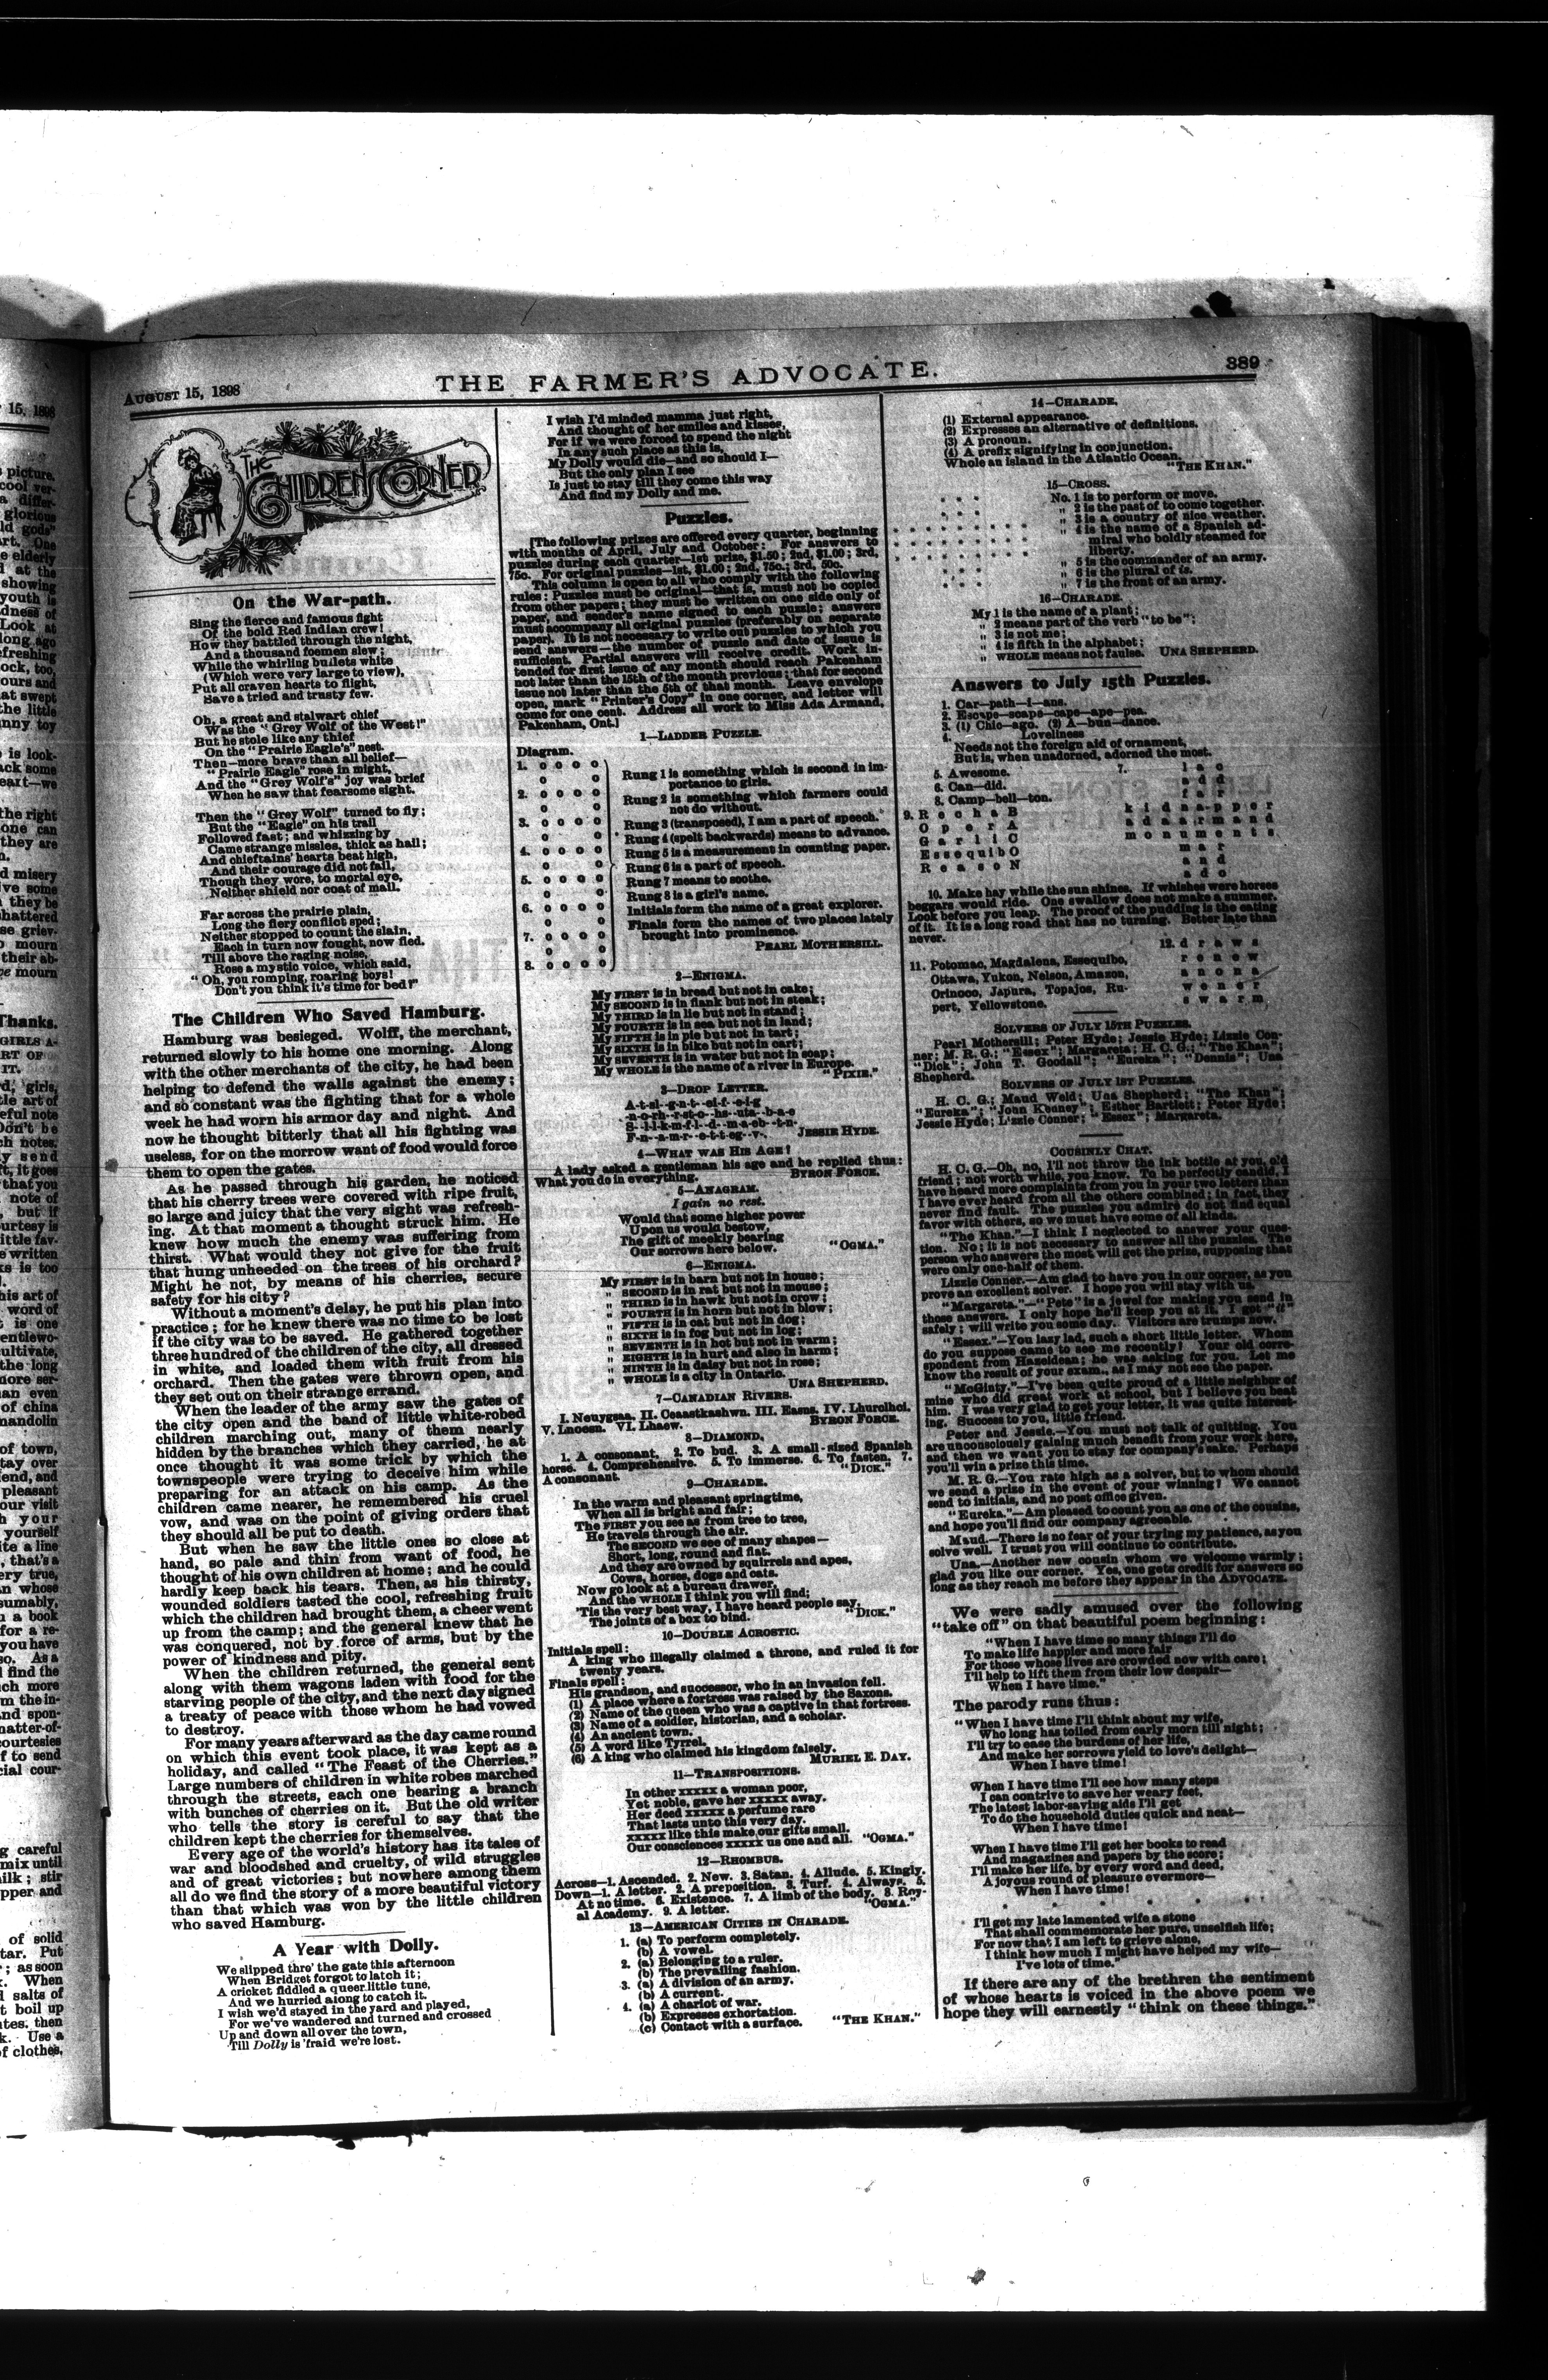 AUGUST 15, 1898
THE FARMER'S ADVOCATE.
389
THE CHILDREN'S CORNER
On the War-path.
Sing the fierce and famous fight
Of the bold Red Indian crew!
How they battled through the night,
And a thousand foemen slew;
While the whirling bullets white
(Which were very large to view),
Put all craven hearts to flight,
Save a tried and trusty few.
Oh, a great and stalwart chief
Was the "Grey Wolf of the West!"
But he stole like any thief
On the "Prairie Eagle's" nest.
Then—more brave than all belief—
"Prairie Eagle" rose in might,
And the "Grey Wolf's" joy was brief
When he saw that fearsome sight.
Then the "Grey Wolf" turned to fly;
But the "Eagle" on his trail
Followed fast; and whizzing by
Came strange missles, thick as hail;
And chieftains' hearts beat high,
And their courage did not fail,
Though they wore, to mortal eye,
Neither shield nor coat of mail.
Far across the prairie plain,
Long the fiery conflict sped;
Neither stopped to count the slain,
Each in turn now fought, now fled.
Till above the raging noise,
Rose a mystic voice, which said,
"Oh, you romping, roaring boys!
Don't you think it's time for bed?"
The Children Who Saved Hamburg.
Hamburg was besieged. Wolff, the merchant,
returned slowly to his home one morning. Along
with the other merchants of the city, he had been
helping to defend the walls against the enemy;
and so constant was the fighting that for a whole
week he had worn his armor day and night. And
now he thought bitterly that all his fighting was
useless, for on the morrow want of food would force
them to open the gates.
As he passed through his garden, he noticed
that his cherry trees were covered with ripe fruit,
so large and juicy that the very sight was refresh-
ing. At that moment a thought struck him. He
knew how much the enemy was suffering from
thirst. What would they not give for the fruit
that hung unheeded on the trees of his orchard?
Might he not, by means of his cherries, secure
safety for his city?
Without a moment's delay, he put his plan into
practice; for he knew there was no time to be lost
if the city was to be saved. He gathered together
three hundred of the children of the city, all dressed
in white, and loaded them with fruit from his
orchard. Then the gates were thrown open, and
they set out on their strange errand.
When the leader of the army saw the gates of
the city open and the band of little white-robed
children marching out, many of them nearly
hidden by the branches which they carried, he at
once thought it was some trick by which the
townspeople were trying to deceive him while
preparing for an attack on his camp. As the
children came nearer, he remembered his cruel
vow, and was on the point of giving orders that
they should all be put to death.
But when he saw the little ones so close at
hand, so pale and thin from want of food, he
thought of his own children at home; and he could
hardly keep back his tears. Then, as his thirsty,
wounded soldiers tasted the cool, refreshing fruit
which the children had brought them, a cheer went
up from the camp; and the general knew that he
was conquered, not by force of arms, but by the
power of kindness and pity.
When the children returned, the general sent
along with them wagons laden with food for the
starving people of the city, and the next day signed
a treaty of peace with those whom he had vowed
to destroy.
For many years afterward as the day came round
on which this event took place, it was kept as a
holiday, and called "The Feast of the Cherries."
Large numbers of children in white robes marched
through the streets, each one bearing a branch
with bunches of cherries on it. But the old writer
who tells the story is careful to say that the
children kept the cherries for themselves.
Every age of the world's history has its tales of
war and bloodshed and cruelty, of wild struggles
and of great victories; but nowhere among them
all do we find the story of a more beautiful victory
than that which was won by the little children
who saved Hamburg.
A Year with Dolly.
We slipped thro' the gate this afternoon
When Bridget forgot to latch it;
A cricket fiddled a queer little tune,
And we hurried along to catch it.
I wish we'd stayed in the yard and played,
For we've wandered and turned and crossed
Up and down all over the town,
Till Dolly is 'fraid we're lost.
I wish I'd minded mamma just right,
And thought of her smiles and kisses,
For if we were forced to spend the night
In any such place as this is,
My Dolly would die—and so should I—
But the only plan I see
Is just to stay till they come this way
And find my Dolly and me.
Puzzles.
[The following prizes are offered every quarter, beginning
with months of April, July and October: For answers to
puzzles during each quarter—1st prize, $1.50; 2nd, $1.00; 3rd,
75c. For original puzzles—1st, $1.00; 2nd, 75c.; 3rd, 50c.
This column is open to all who comply with the following
rules: Puzzles must be original—that is, must not be copied
from other papers; they must be written on one side only of
paper, and sender's name signed to each puzzle; answers
must accompany all original puzzles (preferably on separate
paper). It is not necessary to write out puzzles to which you
send answers—the number of puzzle and date of issue is
sufficient. Partial answers will receive credit. Work in-
tended for first issue of any month should reach Pakenham
not later than the 15th of the month previous; that for second
issue not later than the 5th of that month. Leave envelope
open, mark "Printer's Copy" in one corner, and letter will
come for one cent. Address all work to Miss Ada Armand,
Pakenham, Ont.]
1—LADDER PUZZLE.
Diagram.
1. o o o o
o o
2. o o o o
o o
3. o o o o
o o
4. o o o o
o o
5. o o o o
o o
6. o o o o
o o
7. o o o o
o o
8. o o o o
Rung 1 is something which is second in im-
portance to girls.
Rung 2 is something which farmers could
not do without.
Rung 3 (transposed), I am a part of speech.
Rung 4 (spelt backwards) means to advance.
Rung 5 is a measurement in counting paper.
Rung 6 is a part of speech.
Rung 7 means to soothe.
Rung 8 is a girl's name.
Initials form the name of a great explorer.
Finals form the names of two places lately
brought into prominence.
PEARL MOTHERSILL.
2—ENIGMA.
My FIRST is in bread but not in cake;
My SECOND is in flank but not in steak;
My THIRD is in lie but not in stand;
My FOURTH is in sea but not in land;
My FIFTH is in pie but not in tart;
My SIXTH is in bike but not in cart;
My SEVENTH is in water but not in soap;
My WHOLE is the name of a river in Europe.
"PIXIE."
3—DROP LETTER.
JESSIE HYDE.
4—WHAT WAS HIS AGE?
A lady asked a gentleman his age and he replied thus:
What you do in everything.
BYRON FORCE.
5—ANAGRAM.
I gain no rest.
Would that some higher power
Upon us would bestow,
The gift of meekly bearing
Our sorrows here below.
"OGMA."
6—ENIGMA.
My FIRST is in barn but not in house;
" SECOND is in rat but not in mouse;
" THIRD is in hawk but not in crow;
" FOURTH is in horn but not in blow;
" FIFTH is in cat but not in dog;
" SIXTH is in fog but not in log;
" SEVENTH is in hot but not in warm;
" EIGHTH is in hurt and also in harm;
" NINTH is in daisy but not in rose;
" WHOLE is a city in Ontario.
UNA SHEPHERD.
7—CANADIAN RIVERS.
I. Neuygsaa. II. Ceaastkashwn. III. Easne. IV. Lhurolhci.
V. Lnoesn. VI. Lhaew.
BYRON FORCE.
8—DIAMOND.
1. A consonant. 2. To bud. 3. A small-sized Spanish
horse. 4. Comprehensive. 5. To immerse. 6. To fasten. 7.
A consonant.
"DICK."
9—CHARADE.
In the warm and pleasant springtime,
When all is bright and fair;
The FIRST you see as from tree to tree,
He travels through the air.
The SECOND we see of many shapes—
Short, long, round and flat.
And they are owned by squirrels and apes,
Cows, horses, dogs and cats.
Now go look at a bureau drawer,
And the WHOLE I think you will find;
'Tis the very best way, I have heard people say,
The joints of a box to bind.
"DICK."
10—DOUBLE ACROSTIC.
Initials spell:
A king who illegally claimed a throne, and ruled it for
twenty years.
Finals spell:
His grandson, and successor, who in an invasion fell.
(1) A place where a fortress was raised by the Saxons.
(2) Name of the queen who was a captive in that fortress.
(3) Name of a soldier, historian, and a scholar.
(4) An ancient town.
(5) A word like Tyrrel.
(6) A king who claimed his kingdom falsely.
MURIEL E. DAY.
11—TRANSPOSITIONS.
In other xxxxx a woman poor,
Yet noble, gave her xxxxx away.
Her deed xxxxx a perfume rare
That lasts unto this very day.
xxxxx like this make our gifts small.
Our consciences xxxxx us one and all.
"OGMA."
12—RHOMBUS.
Across—1. Ascended. 2. New. 3. Satan. 4. Allude. 5. Kingly.
Down—1. A letter. 2. A preposition. 3. Turf. 4. Always. 5.
At no time. 6. Existence. 7. A limb of the body. 8. Roy-
al Academy. 9. A letter.
"OGMA."
13—AMERICAN CITIES IN CHARADE.
1. (a) To perform completely.
(b) A vowel.
2. (a) Belonging to a ruler.
(b) The prevailing fashion.
3. (a) A division of an army.
(b) A current.
4. (a) A chariot of war.
(b) Expresses exhortation.
(c) Contact with a surface.
"THE KHAN."
14—CHARADE.
(1) External appearance.
(2) Expresses an alternative of definitions.
(3) A pronoun.
(4) A prefix signifying in conjunction.
Whole an island in the Atlantic Ocean.
"THE KHAN."
15—CROSS.
No. 1 is to perform or move.
" 2 is the past of to come together.
" 3 is a country of nice weather.
" 4 is the name of a Spanish ad-
miral who boldly steamed for
liberty.
" 5 is the commander of an army.
" 6 is the plural of is.
" 7 is the front of an army.
16—CHARADE.
My 1 is the name of a plant;
" 2 means part of the verb "to be";
" 3 is not me;
" 4 is fifth in the alphabet;
" WHOLE means not faulse.
UNA SHEPHERD.
Answers to July 15th Puzzles.
1. Car—path—i—ans.
2. Escape—scape—cape—ape—pea.
3. (1) Chic—ago. (2) A—bun—dance.
4. Loveliness
Needs not the foreign aid of ornament,
But is, when unadorned, adorned the most.
5. Awesome.
6. Can—did.
8. Camp—bell—ton.
7. l a c
a d d
f a r
k i d n a p p e r
a d a a r m a n d
m o n u m e n t s
m a r
a n d
a d o
9. R e c h a B
O p e r A
G a r l i C
E s s e q u i b O
R e a s o N
10. Make hay while the sun shines. If whishes were horses
beggars would ride. One swallow does not make a summer.
Look before you leap. The proof of the pudding is the eating
of it. It is a long road that has no turning. Better late than
never.
11. Potomac, Magdalena, Essequibo,
Ottawa, Yukon, Nelson, Amazon,
Orinoco, Japura, Topajos, Ru-
pert, Yellowstone.
12. d r a w s
r e n e w
a n o n a
w e n e r
s w a r m
SOLVERS OF JULY 15TH PUZZLES.
Pearl Mothersill; Peter Hyde; Jessie Hyde; Lizzie Con-
ner; M. R. G.; "Essex"; Margareta; H. C. G.; "The Khan";
"Dick"; John T. Goodall; "Eureka"; "Dennis"; Una
Shepherd.
SOLVERS OF JULY 1ST PUZZLES.
H. C. G.; Maud Weld; Una Shepherd; "The Khan";
"Eureka"; "John Keaney"; Esther Bartlett; Peter Hyde;
Jessie Hyde; Lizzie Conner; "Essex"; Margareta.
COUSINLY CHAT.
H. C. G.—Oh, no, I'll not throw the ink bottle at you, old
friend; not worth while, you know. To be perfectly candid, I
have heard more complaints from you in your two letters than
I have ever heard from all the others combined; in fact, they
never find fault. The puzzles you admire do not find equal
favor with others, so we must have some of all kinds.
"The Khan."—I think I neglected to answer your ques-
tion. No; it is not necessary to answer all the puzzles. The
person who answers the most will get the prize, supposing that
were only one-half of them.
Lizzie Conner.—Am glad to have you in our corner, as you
prove an excellent solver. I hope you will stay with us.
"Margareta."—"Pete" is a jewel for making you send in
those answers. I only hope he'll keep you at it. I got "it"
safely; will write you some day. Visitors are trumps now.
"Essex."—You lazy lad, such a short little letter. Whom
do you suppose came to see me recently? Your old corre-
spondent from Hazeldean; he was asking for you. Let me
know the result of your exam., as I may not see the paper.
"McGinty."—I've been quite proud of a little neighbor of
mine who did great work at school, but I believe you beat
him. I was very glad to get your letter, it was quite interest-
ing. Success to you, little friend.
Peter and Jessie.—You must not talk of quitting. You
are unconsciously gaining much benefit from your work here,
and then we want you to stay for company's sake. Perhaps
you'll win a prize this time.
M. R. G.—You rate high as a solver, but to whom should
we send a prize in the event of your winning? We cannot
send to initials, and no post office given.
"Eureka."—Am pleased to count you as one of the cousins,
and hope you'll find our company agreeable.
Maud.—There is no fear of your trying my patience, as you
solve well. I trust you will continue to contribute.
Una.—Another new cousin whom we welcome warmly;
glad you like our corner. Yes, one gets credit for answers so
long as they reach me before they appear in the ADVOCATE.
We were sadly amused over the following
"take off" on that beautiful poem beginning:
"When I have time so many things I'll do
To make life happier and more fair
For those whose lives are crowded now with care;
I'll help to lift them from their low despair—
When I have time."
The parody runs thus:
"When I have time I'll think about my wife,
Who long has toiled from early morn till night;
I'll try to ease the burdens of her life,
And make her sorrows yield to love's delight—
When I have time!
When I have time I'll see how many steps
I can contrive to save her weary feet,
The latest labor-saving aids I'll get
To do the household duties quick and neat—
When I have time!
When I have time I'll get her books to read
And magazines and papers by the score;
I'll make her life, by every word and deed,
A joyous round of pleasure evermore—
When I have time!
I'll get my late lamented wife a stone
That shall commemorate her pure, unselfish life;
For now that I am left to grieve alone,
I think how much I might have helped my wife—
I've lots of time."
If there are any of the brethren the sentiment
of whose hearts is voiced in the above poem we
hope they will earnestly "think on these things."